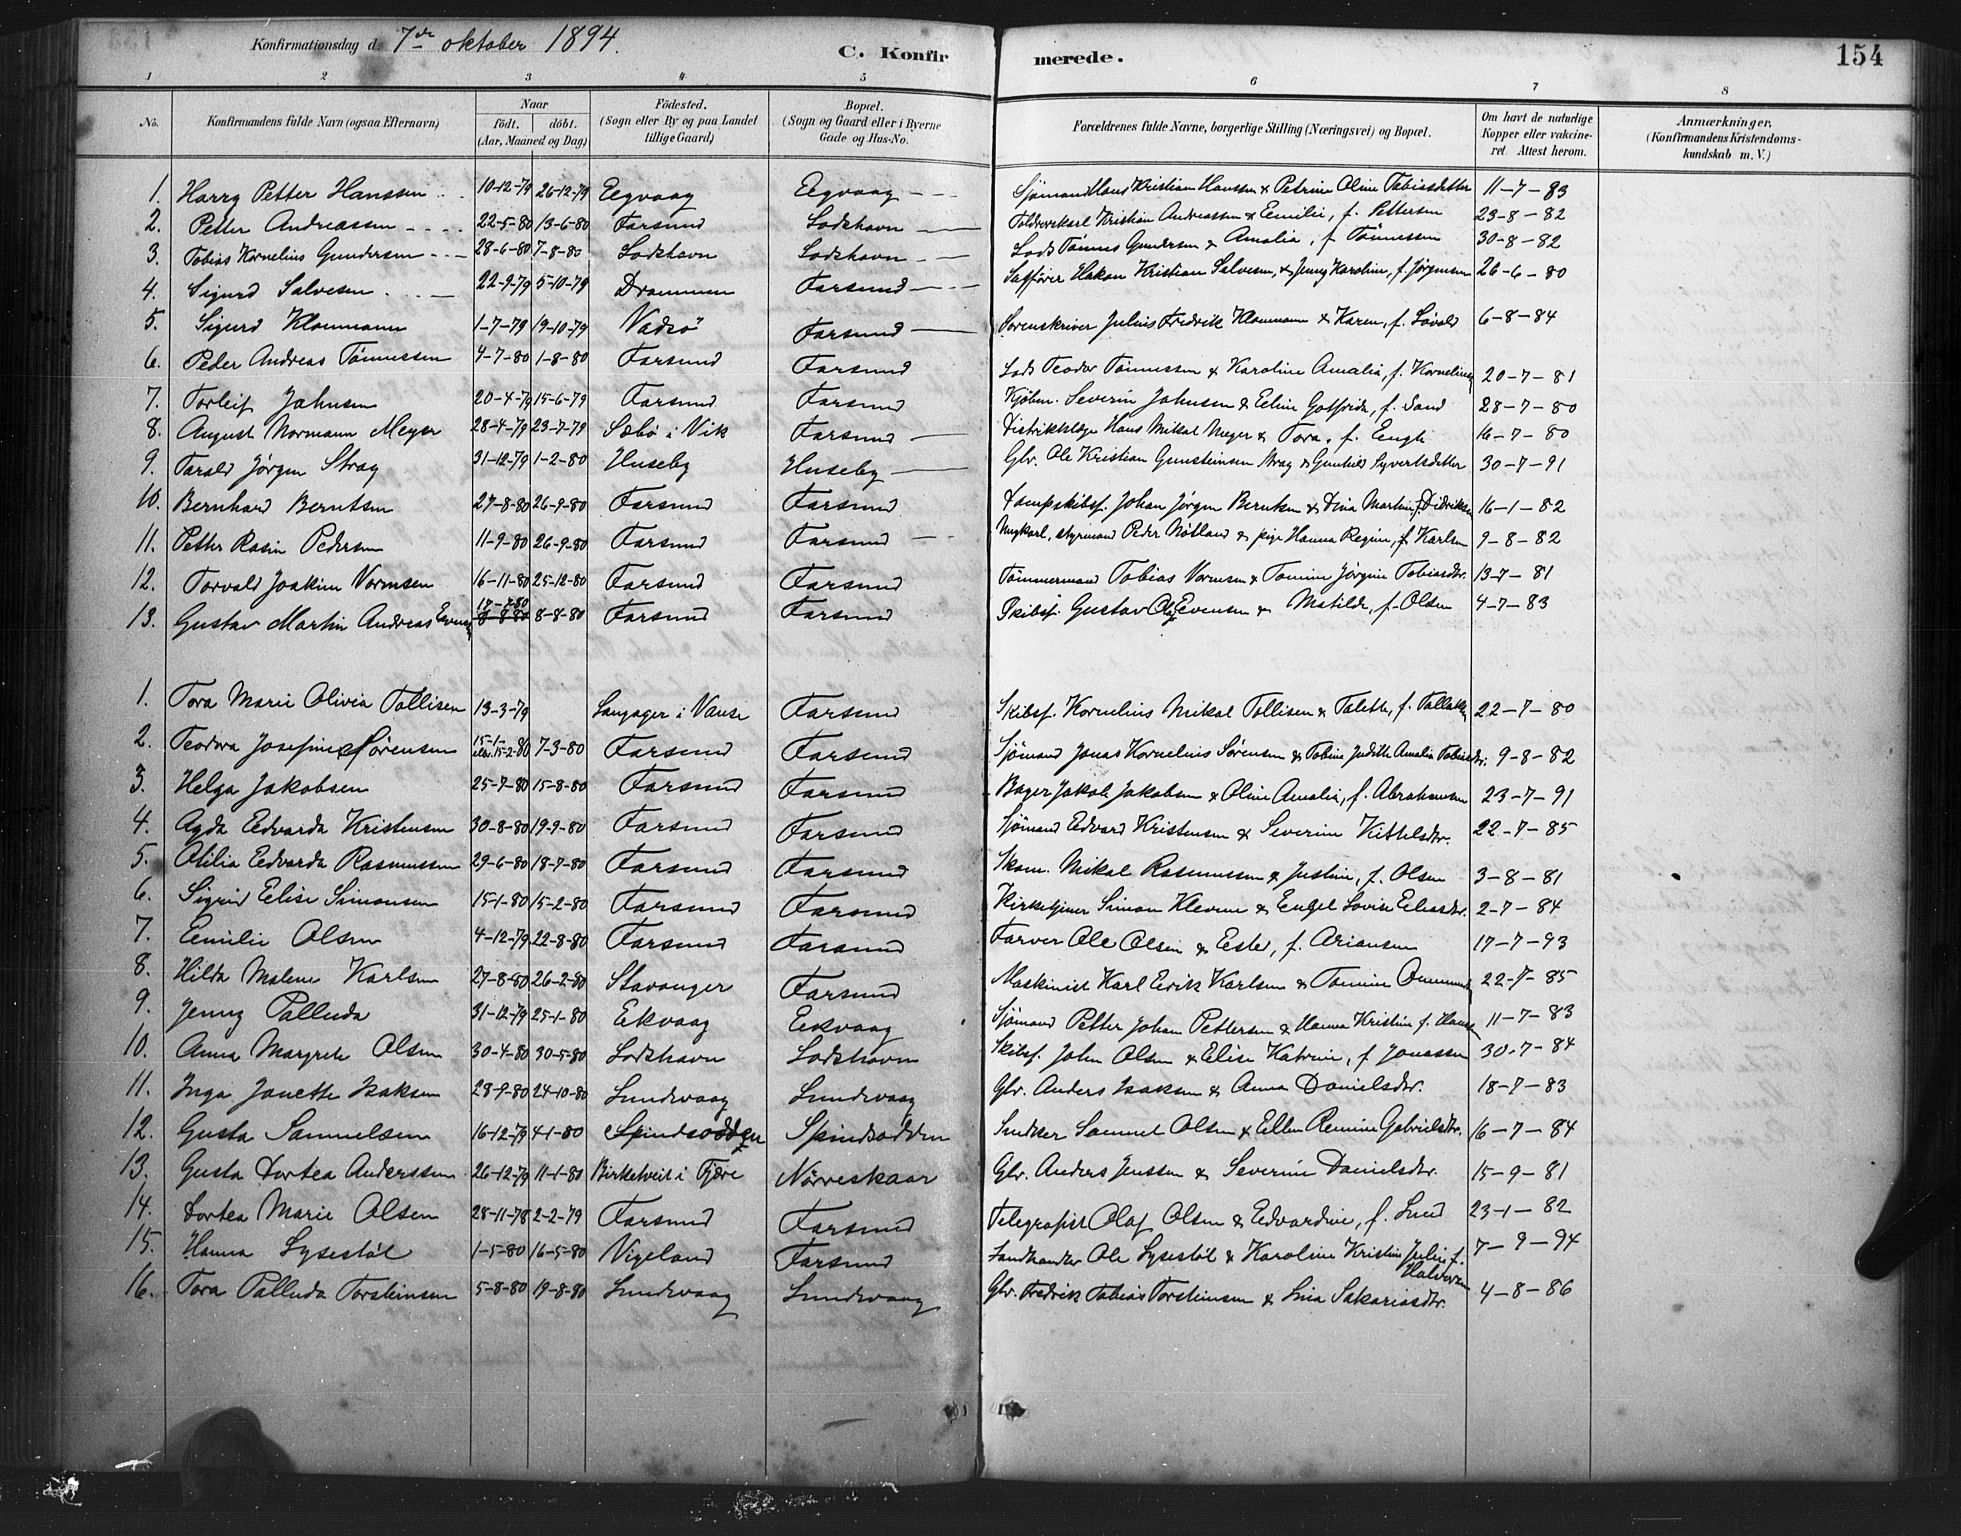 Konfirmationsdag d. 7de oktober 1894.
C. Konfirmerede.
154
1 2 3 4 5 6 7 8
No.
Konfirmandens fulde Navn (ogsaa Efternavn)
Naar født. døbt. (Aar, Maaned og Dag)
Födested. (Sogn eller By og paa Landet tillige Gaard)
Bopæl. (Sogn og Gaard eller i Byerne Gade og Hus-No.
Forældrenes fulde Navne, borgerlige Stilling (Næringsvei) og Bopæl.
Om havt de naturlige Kopper eller vakcineret. Attest herom.
Anmærkninger. (Konfirmandens Kristendomskundskab m. V.)
1. Harry Petter Hanssen 10-12-79 26-12-79 Eegvaag Eegvaag Sjømand Hans Kristian Hanssen & Petrine Oline Tobiasdatter 11-7-83
2. Petter Andreassen 22-5-80 13-6-80 Farsund Lodshavn Kristian Andreassen & Eemilie, f. Pettersen 23-8-82
3. Tobias Kornelius Gundersen 28-6-80 7-8-80 Lodshavn Lodshavn Lods Tønnes Gundersen & Amalia, f. Tønnessen 30-8-82
4. Sigurd Salvesen 22-9-79 5-10-79 Drammen Farsund Hakon Kristian Salvesen, & Jenny Karoline, f. Jørgensen 26-6-80
5. Sigurd Kloumann 1-7-79 19-10-79 Vadsö Farsund Sorenskriver Julius Fredrik Kloumann & Karen, f. Løvold 6-8-84
6. Peder Andreas Tønnessen 4-7-80 1-8-80 Farsund Farsund Lods Teodor Tønnessen & Karoline Amalia, f. Kornelius 20-7-81
7. Torleif Johnsen 20-4-79 15-6-79 Farsund Farsund Kjøbm. Severin Johnsen & Eeline Gotfrida, f. Sand 28-7-80
8. August Normann Meyer 28-4-79 23-7-79 Sæbö i Vik Farsund Distriktslæge Hans Mikal Meyer & Tora, f. Eengh 16-7-80
9. Tarald Jørgen Stray 31-12-79 1-2-80 Huseby Huseby Gbr. Ole Kristian Gunsteinsen Stray & Gunhild Syvertsdatter 30-7-91
10. Bernhard Berntsen 27-8-80 26-9-80 Farsund Farsund Dampskibsf. Johan Jørgen Berntsen & Dina Martine, f. Didriksen 16-1-82
11. Petter Rasin Pedersen 11-9-80 26-9-80 Farsund Farsund Ungkarl, styrmand Peder Nøtland & pige Hanna Regine, f. Karlsen 9-8-82
12. Torvald Joakim Vormsen 16-11-80 25-12-80 Farsund Farsund Tømmermand Tobias Vormsen & Tomine Jørgine Tobiasdtr. 13-7-81
13. Gustav Martin Andreas Eevensen 17-7-80 8-8-80 8-8-80 Farsund Farsund Skibsf. Gustav Olaj Eevensen & Matilde, f. Olsen 4-7-83
1. Tora Marie Olivia Tollisen 13-3-79 Langager i Vanse Farsund Skibsf. Kornelius Mikal Tollisen & Talette, f. Tallaksen 22-7-80
2. Teodora Josefine Sørensen 15-1-80 eller 15-2-80 7-3-80 Farsund Farsund Sjømand Jonas Kornelius Sørensen & Tobine Judithe Amalia Tobiasdtr. 9-8-82
3. Helga Jakobsen 25-7-80 15-8-80 Farsund Farsund Bager Jakob Jakobsen & Oline Amalia, f. Abrahamsen 23-7-91
4. Agda Eedvarda Kristensen 30-8-80 19-9-80 Farsund Farsund Sjømand Edvard Kristensen & Severine Kittelsdtr. 22-7-85
5. Otilia Eedvarda Rasmussen 29-6-80 18-7-80 Farsund Farsund Skom. Mikal Rasmussen & Justine, f. Olsen 3-8-81
6. Sigrid Eelise Simonsen 15-1-80 15-2-80 Farsund Farsund Kirketjener Simon Klevene & Engel Lovise Eeliasdtr. 2-7-84
7. Eemilie Olsen 4-12-79 22-8-80 Farsund Farsund Farver Ole Olsen & Eeste, f. Ariansen 17-7-93
8. Hilda Malene Karlsen 27-8-80 26-2-80 Stavanger Farsund Maskinist Karl Eerik Karlsen & Tomine 22-7-85
9. Jenny Palluda 31-12-79 25-1-80 Eekvaag Eekvaag Sjømand Petter Johan Pettersen & Hanna Kristine f. Hansen 11-7-83
10. Anna Margrete Olsen 30-4-80 30-5-80 Lodshavn Lodshavn Skibsf. John Olsen & Eelise Katrine, f. Jonassen 30-7-84
11. Inga Janette Isaksen 28-9-80 24-10-80 Lundevaag Lundevaag Gbr. Anders Isaksen & Anna Danielsdtr. 18-7-83
12. Gusta Samuelsen 16-12-79 4-1-80 Spindsodden Spindsodden Samuel Olsen & Ellen Remine Gabrielsdtr. 16-7-84
13. Gusta Dortea Anderssen 26-12-79 11-1-80 Birketveit i Fjære Nørreskaar Gbr. Anders Jenssen & Severine Danielsdtr. 15-9-81
14. Dortea Marie Olsen 28-11-78 2-2-79 Farsund Farsund Telegrafist Olaf Olsen & Eedvardine, f. Lund 23-1-82
15. Hanna Lysestøl 1-5-80 16-5-80 Vigeland Farsund Landhandler Ole Lysestøl & Karoline Kristine Julie f. Halvorsen 7-9-94
16. Tora Palluda Torsteinsen 5-8-80 19-8-80 Lundevaag Lundevaag Gbr. Fredrik Tobias Torsteinsen & Lina Sakariasdtr. 4-8-86